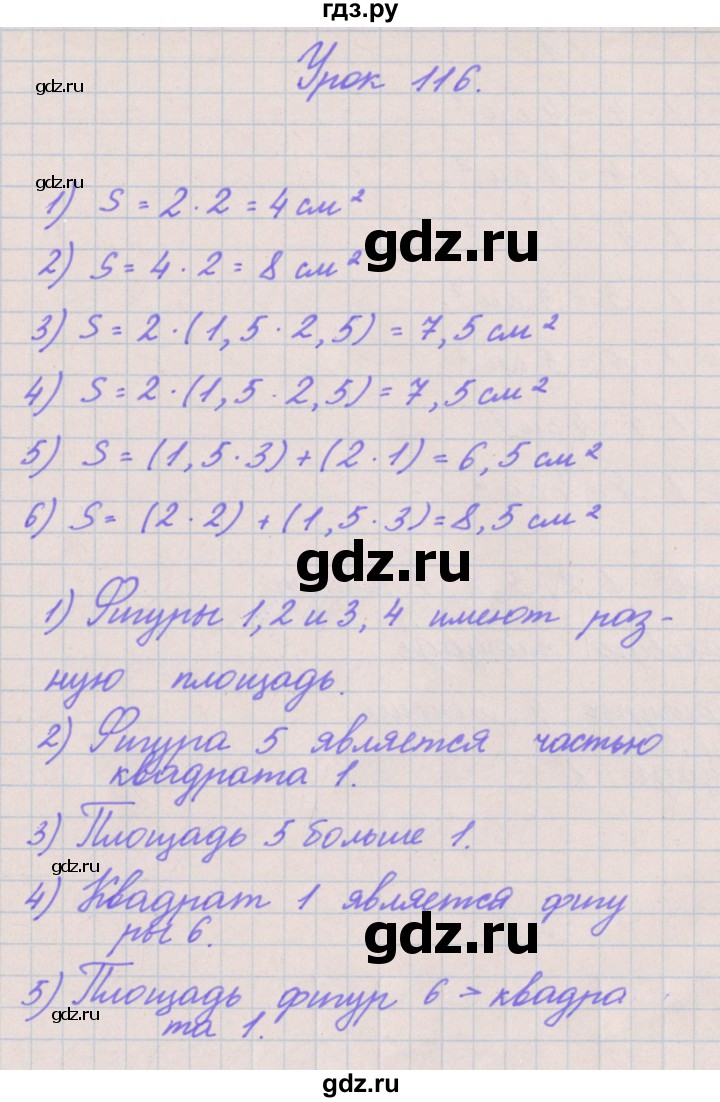 гдз.ру
Урок 116.
gdz.ru
gdz.ru
1) S = 2 · 2 = 4 см²
gdz.ru
2) S = 4 · 2 = 8 см²
3) S = 2 · (1,5 · 2,5) = 7,5 см²
4) S = 2 · (1,5 · 2,5) = 7,5 см²
5) S = (1,5 · 3) + (2 · 1) = 6,5 см²
6) S = (2 · 2) + (1,5 · 3) = 8,5 см²
gdz.ru
1) Фигуры 1, 2 и 3, 4 имеют раз-
ную площадь.
2) Фигура 5 является частью
квадрата 1.
3) Площадь 5 больше 1.
gdz.ru
4) Квадрат 1 является фигу
ры 6.
gdz.ru
5) Площадь фигур 6 > квадра
та 1.
gdz.ru
gdz.ru